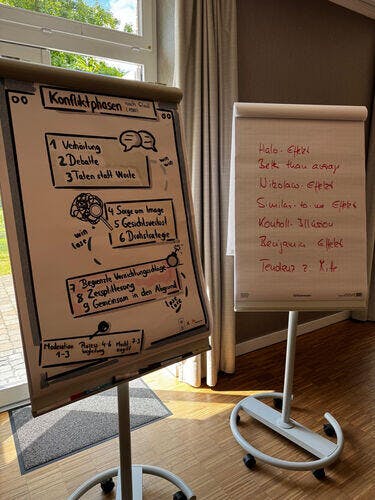 Konfliktphasen nach Glasl
1 Verhärtung
2 Debatte
3 Taten statt Worte
win
win
4 Sorge um Image
5 Gesichtsverlust
6 Drohstrategie
win
lose
7 Begrenzte Vernichtungsschläge
8 Zersplitterung
9 Gemeinsam in den Abgrund
lose
lose
Moderation 1-3
Prozessbegleitung 4-6
Macht eingriff 7-9
Halo-Effekt
Better than average
Nikolaus-Effekt
Similar-to-me Effekt
Kontroll-Illusion
Benjamin Effekt
Tendenz z. Mitte